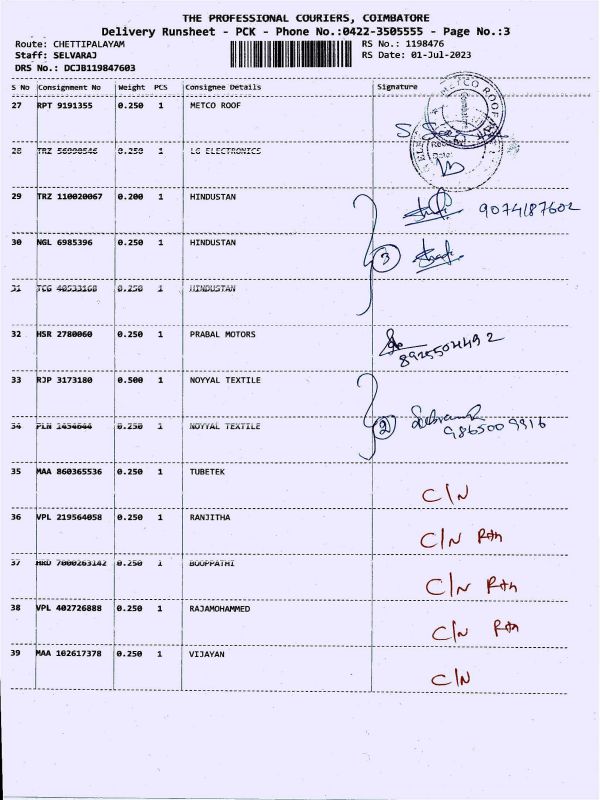 THE PROFESSIONAL COURIERS, COIMBATORE
Delivery Runsheet - PCK - Phone No.:0422-3505555 - Page No.:3
Route: CHETTIPALAYAM RS No.: 1198476
Staff: SELVARAJ RS Date: 01-Jul-2023
DRS No.: DCJB119847603
S No Consignment No Weight PCS Consignee Details Signature
27 RPT 9191355 0.250 1 METCO ROOF
METCO ROOF
28 TRZ 56990546 0.250 1 LG ELECTRONICS
29 TRZ 110020067 0.200 1 HINDUSTAN 9074187602
30 NGL 6985396 0.250 1 HINDUSTAN
3
31 TCG 40533168 0.250 1 HINDUSTAN
32 HSR 2780060 0.250 1 PRABAL MOTORS
33 RJP 3173180 0.500 1 NOYYAL TEXTILE
34 PLN 1454644 0.250 1 NOYYAL TEXTILE 2
9865009916
35 MAA 860365536 0.250 1 TUBETEK C/N
36 VPL 219564058 0.250 1 RANJITHA C/N
37 HRD 7000263142 0.250 1 BOOPPATHI C/N
38 VPL 402726888 0.250 1 RAJAMOHAMMED C/N
39 MAA 102617378 0.250 1 VIJAYAN C/N